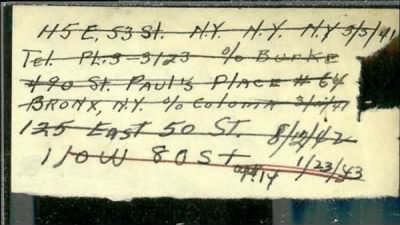 115 E. 53 St. N.Y. N.Y. N.Y 3/3/41
Tel. PL. 3-3123 % Burke
490 St. Paul's Place # 64
Bronx, N.Y. % Coloma
125 East 50 St. 8/12/42
110 W 80 St apt. 14 1/23/43